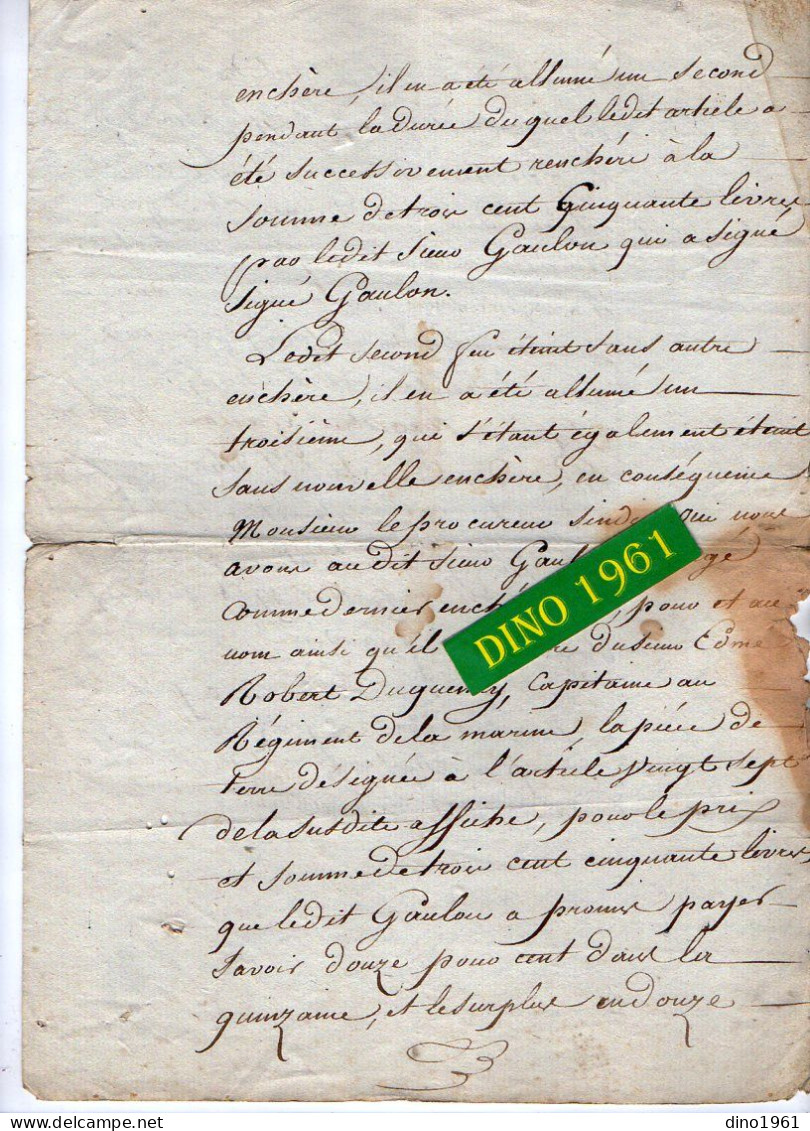 enchère, il en a été allumé un second
pendant la durée du quel ledit article a
été successivement renchéri à la
somme de trois cent Cinquante livres
par ledit sieur Gaulon qui a signé
signé Gaulon.
Ledit second feu éteint sans autre
enchère, il en a été allumé un
troisième, qui s'étant également éteint
sans nouvelle enchère, en conséquence
Monsieur le procureur sindic, qui nous
avons audit sieur
comme dernier, pour et au
nom ainsi qu'il du sieur Edme
Robert, Capitaine au
Régiment de la marine, la pièce de
terre désignée à l'article vingt sept
de la susdite affiche, pour le prix
et somme de trois cent cinquante livres
que ledit Gaulon a promis payer
Savoir douze pour cent dans la
quinzaine, et le surplus en douze
DINO 1961
dino1961